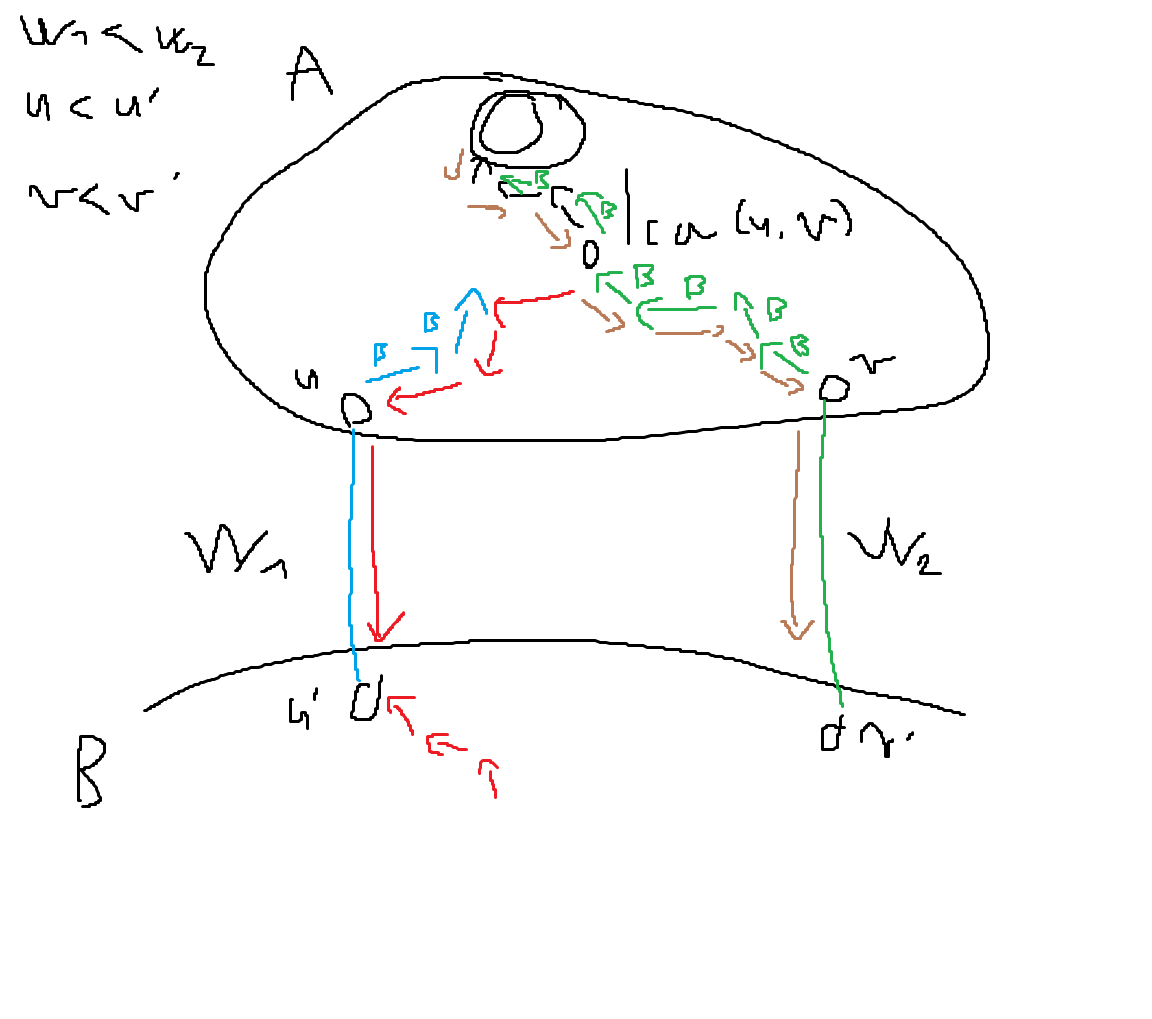 W1 < W2
A
u < u'
v < v'
B
B
lca(u, v)
B
B
B
B
B
B
u
v
W1
W2
u'
v'
B